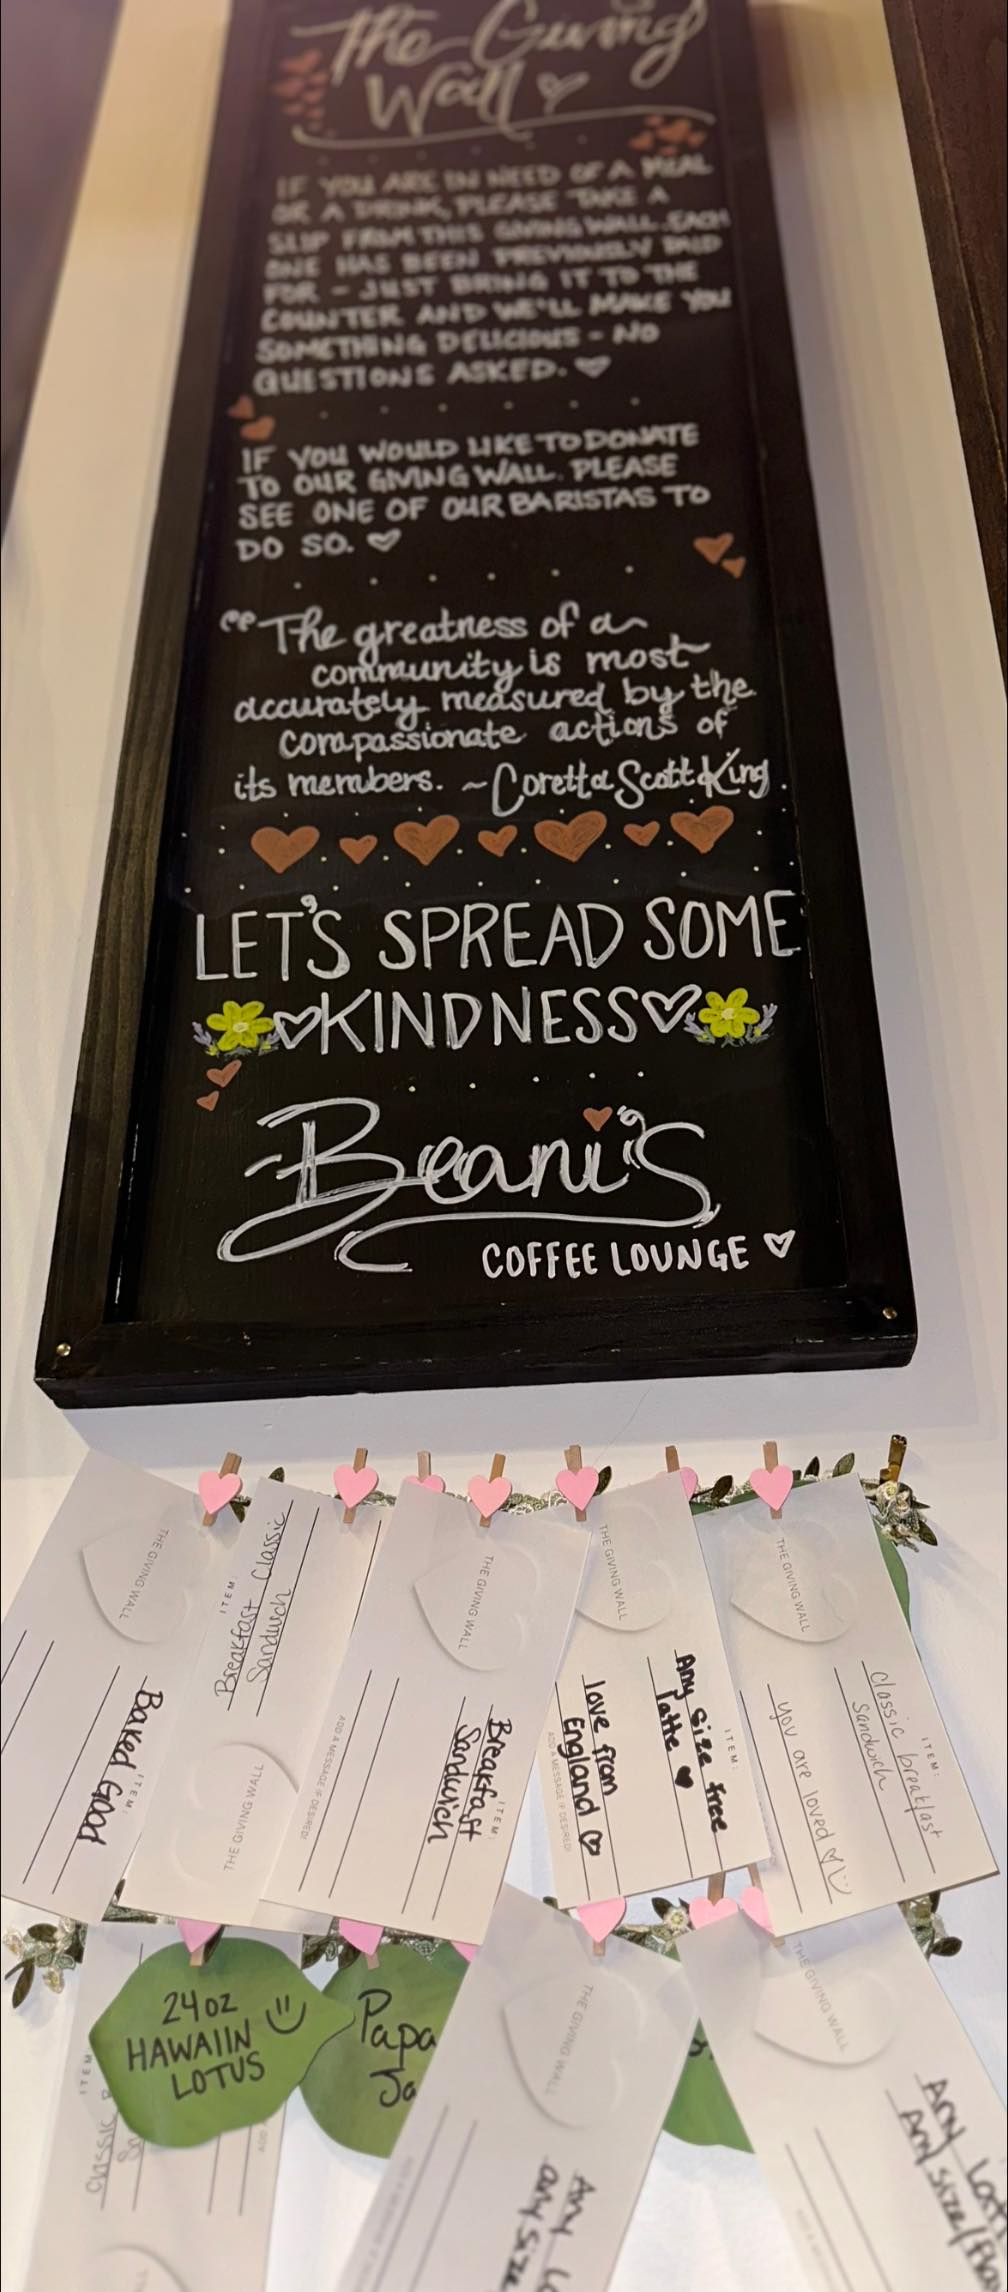 The Giving
Wall
IF YOU ARE IN NEED OF A MEAL
OR A DRINK, PLEASE TAKE A
SLIP FROM THIS GIVING WALL. EACH
ONE HAS BEEN PREVIOUSLY PAID
FOR - JUST BRING IT TO THE
COUNTER AND WE'LL MAKE YOU
SOMETHING DELICIOUS - NO
QUESTIONS ASKED.
IF YOU WOULD LIKE TO DONATE
TO OUR GIVING WALL. PLEASE
SEE ONE OF OUR BARISTAS TO
DO SO.
"The greatness of a
community is most
accurately measured by the
compassionate actions of
its members. ~Coretta Scott King
LET'S SPREAD SOME
KINDNESS
Beani's
COFFEE LOUNGE
THE GIVING WALL
ITEM:
Baked Good
ITEM:
Breakfast Classic
Sandwich
THE GIVING WALL
THE GIVING WALL
ITEM:
Breakfast
Sandwich
ADD A MESSAGE IF DESIRED!
THE GIVING WALL
ITEM:
Any size free
latte
ADD A MESSAGE IF DESIRED!
love from
England
THE GIVING WALL
ITEM:
Classic breakfast
Sandwich
you are loved
24oz
HAWAIIN
LOTUS
Papa
Jo
ITEM:
Classic
THE GIVING WALL
Any
any size
THE GIVING WALL
Any
Any size/